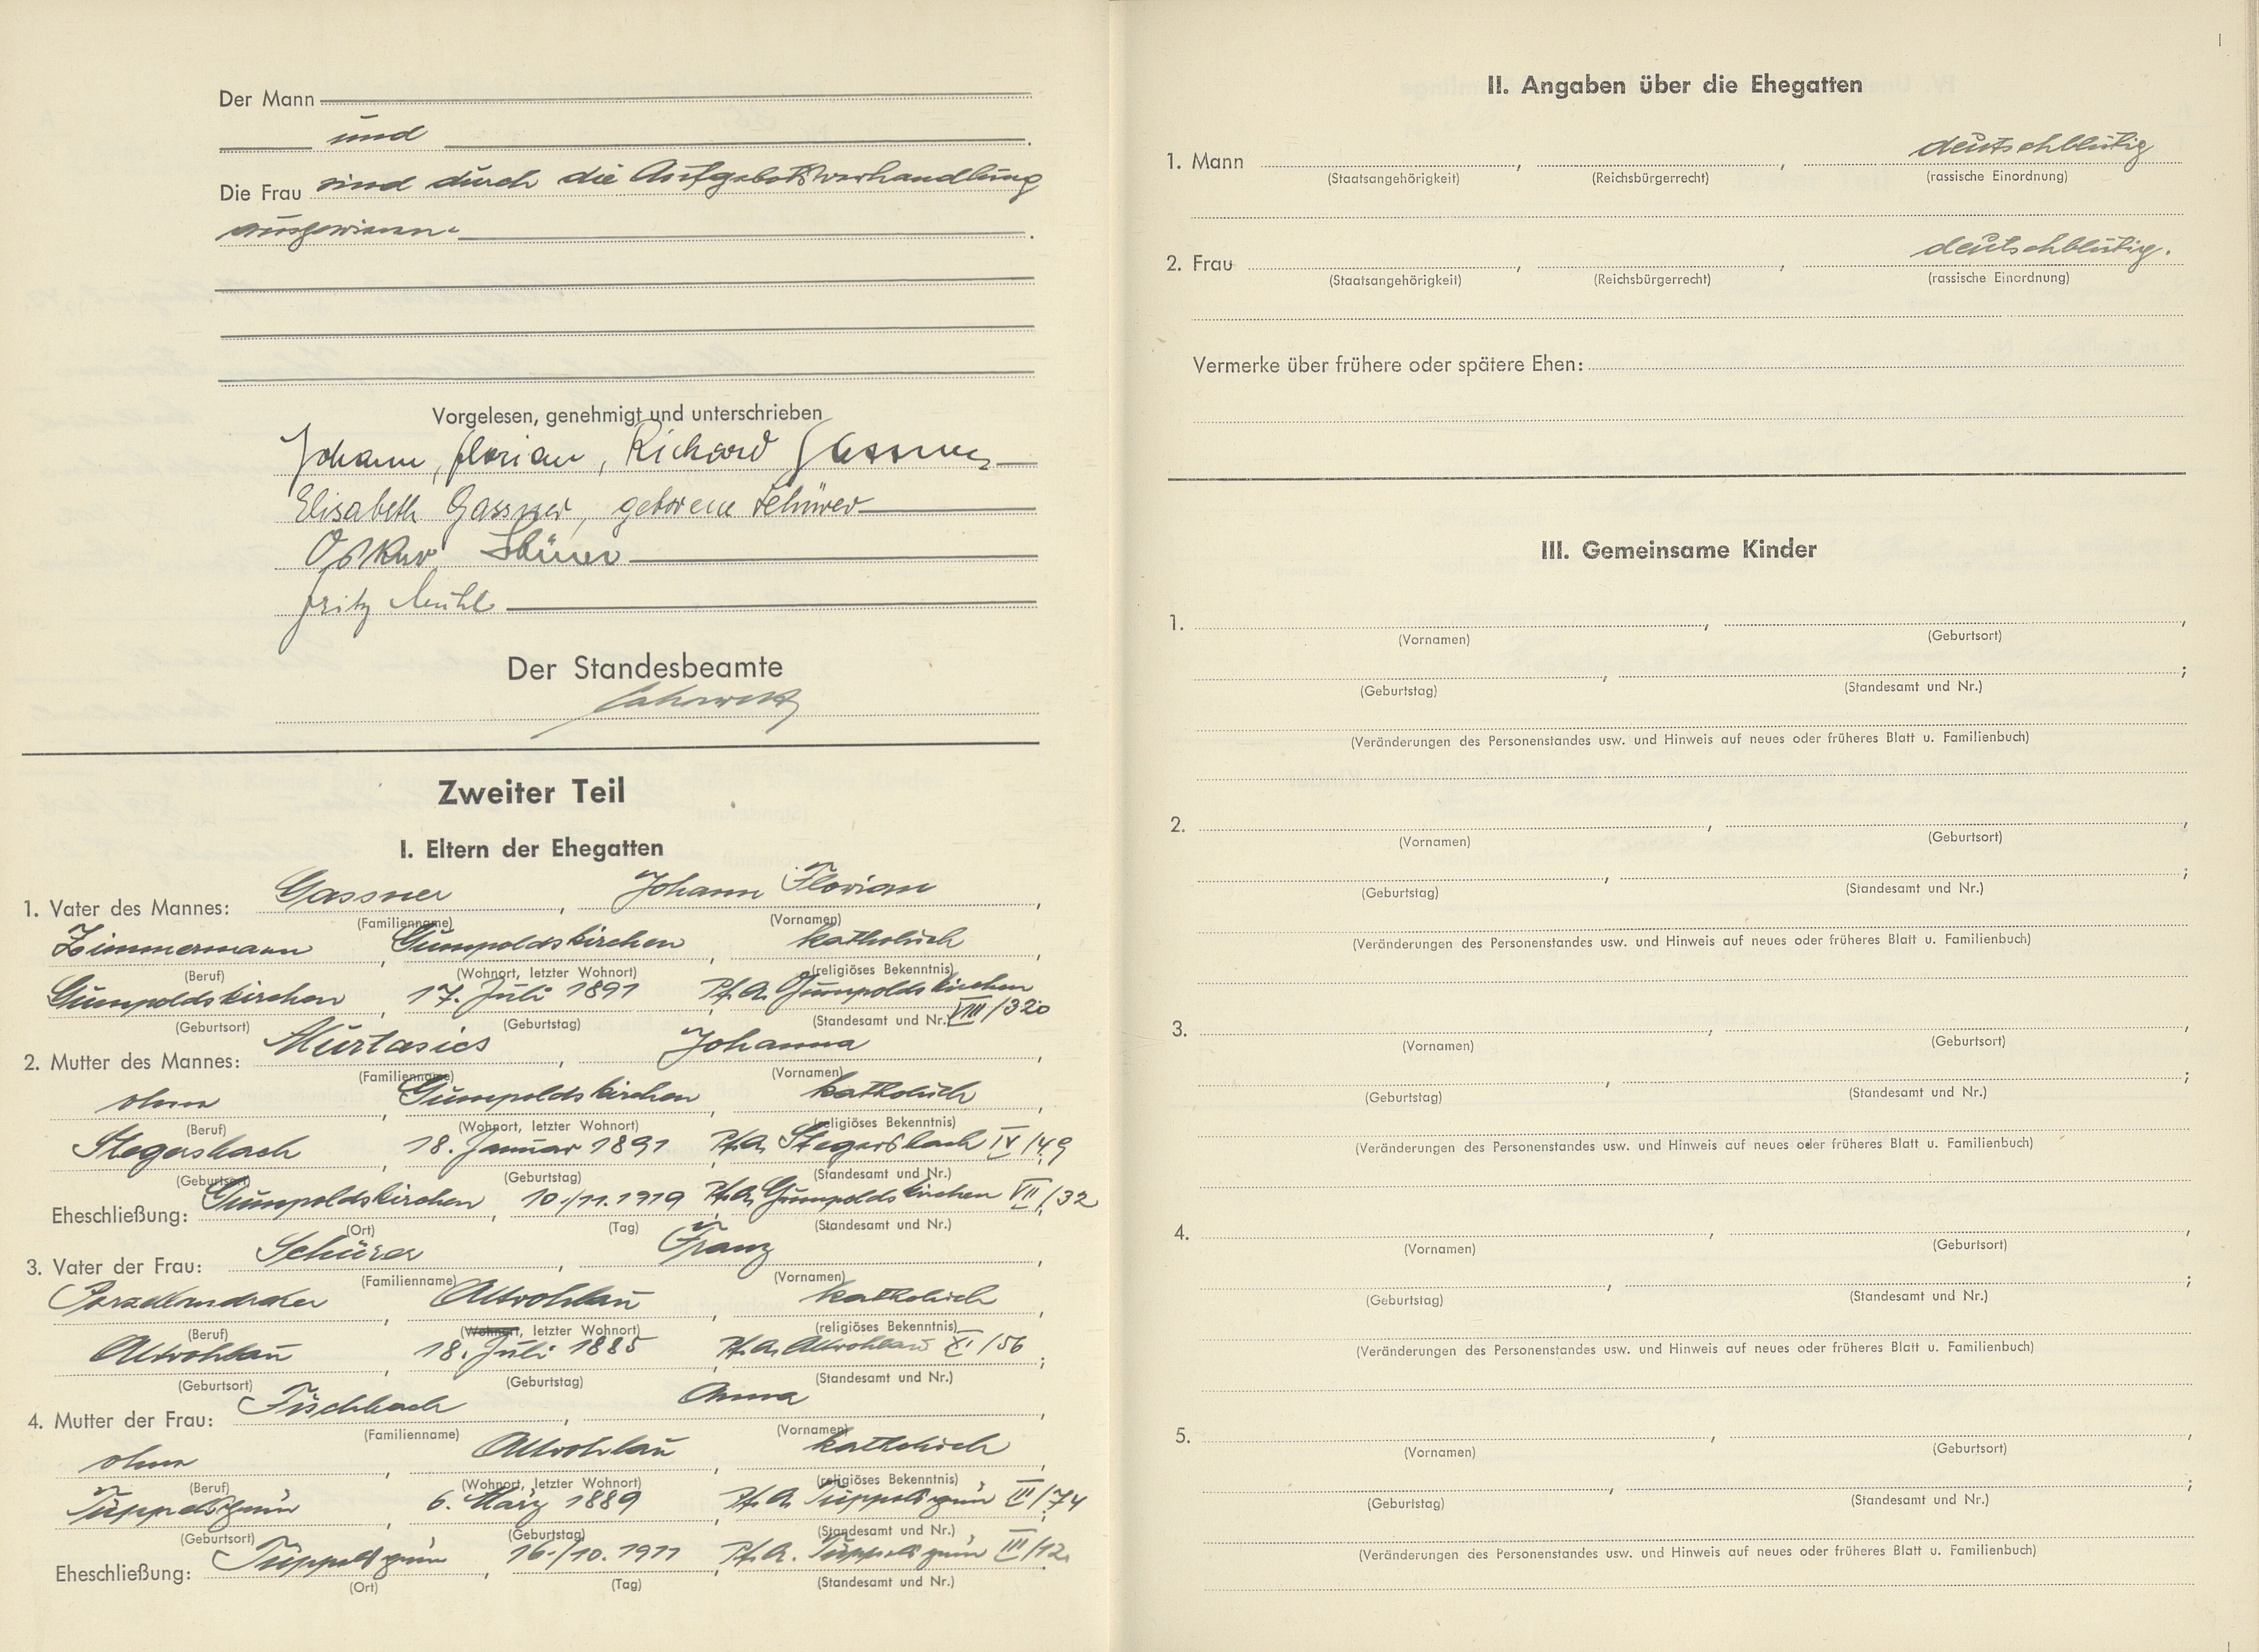 Der Mann
und
Die Frau sind durch die Aufgebotsverhandlung
ausgewiesen.
Vorgelesen, genehmigt und unterschrieben
Johann, Florian, Richard Gassner
Elisabeth Gassner, geborene Schürer
Oskar Schürer
Fritz Mühl
Der Standesbeamte
Zweiter Teil
I. Eltern der Ehegatten
1. Vater des Mannes: Gassner, Johann Florian,
(Familienname) (Vornamen)
Zimmermann, Gumpoldskirchen, katholisch,
(Beruf) (Wohnort, letzter Wohnort) (religiöses Bekenntnis)
Gumpoldskirchen, 17. Juli 1891, Pf.A. Gumpoldskirchen
(Geburtsort) (Geburtstag) (Standesamt und Nr.) VIII/320
2. Mutter des Mannes: Johanna,
(Familienname) (Vornamen)
ohne, Gumpoldskirchen, katholisch,
(Beruf) (Wohnort, letzter Wohnort) (religiöses Bekenntnis)
Stegersbach, 18. Januar 1891, Pf.A. Stegersbach IV/49
(Geburtsort) (Geburtstag) (Standesamt und Nr.)
Eheschließung: Gumpoldskirchen, 10./11.1919, Pf.A. Gumpoldskirchen VII/32
(Ort) (Tag) (Standesamt und Nr.)
3. Vater der Frau: Schürer, Franz,
(Familienname) (Vornamen)
Porzellandreher, Altrohlau, katholisch,
(Beruf) (Wohnort, letzter Wohnort) (religiöses Bekenntnis)
Altrohlau, 18. Juli 1885, Pf.A. Altrohlau XI/56;
(Geburtsort) (Geburtstag) (Standesamt und Nr.)
4. Mutter der Frau: Fischbach, Anna,
(Familienname) (Vornamen)
ohne, Altrohlau, katholisch,
(Beruf) (Wohnort, letzter Wohnort) (religiöses Bekenntnis)
Tüppelsgrün, 6. März 1889, Pf.A. Tüppelsgrün III/74
(Geburtsort) (Geburtstag) (Standesamt und Nr.)
Eheschließung: Tüppelsgrün, 16./10.1911, Pf.A. Tüppelsgrün III/12.
(Ort) (Tag) (Standesamt und Nr.)
II. Angaben über die Ehegatten
1. Mann , , deutschblütig
(Staatsangehörigkeit) (Reichsbürgerrecht) (rassische Einordnung)
2. Frau , , deutschblütig.
(Staatsangehörigkeit) (Reichsbürgerrecht) (rassische Einordnung)
Vermerke über frühere oder spätere Ehen:
III. Gemeinsame Kinder
1. , ,
(Vornamen) (Geburtsort)
, ;
(Geburtstag) (Standesamt und Nr.)
(Veränderungen des Personenstandes usw. und Hinweis auf neues oder früheres Blatt u. Familienbuch)
2. , ,
(Vornamen) (Geburtsort)
, ;
(Geburtstag) (Standesamt und Nr.)
(Veränderungen des Personenstandes usw. und Hinweis auf neues oder früheres Blatt u. Familienbuch)
3. , ,
(Vornamen) (Geburtsort)
, ;
(Geburtstag) (Standesamt und Nr.)
(Veränderungen des Personenstandes usw. und Hinweis auf neues oder früheres Blatt u. Familienbuch)
4. , ,
(Vornamen) (Geburtsort)
, ;
(Geburtstag) (Standesamt und Nr.)
(Veränderungen des Personenstandes usw. und Hinweis auf neues oder früheres Blatt u. Familienbuch)
5. , ,
(Vornamen) (Geburtsort)
, ;
(Geburtstag) (Standesamt und Nr.)
(Veränderungen des Personenstandes usw. und Hinweis auf neues oder früheres Blatt u. Familienbuch)